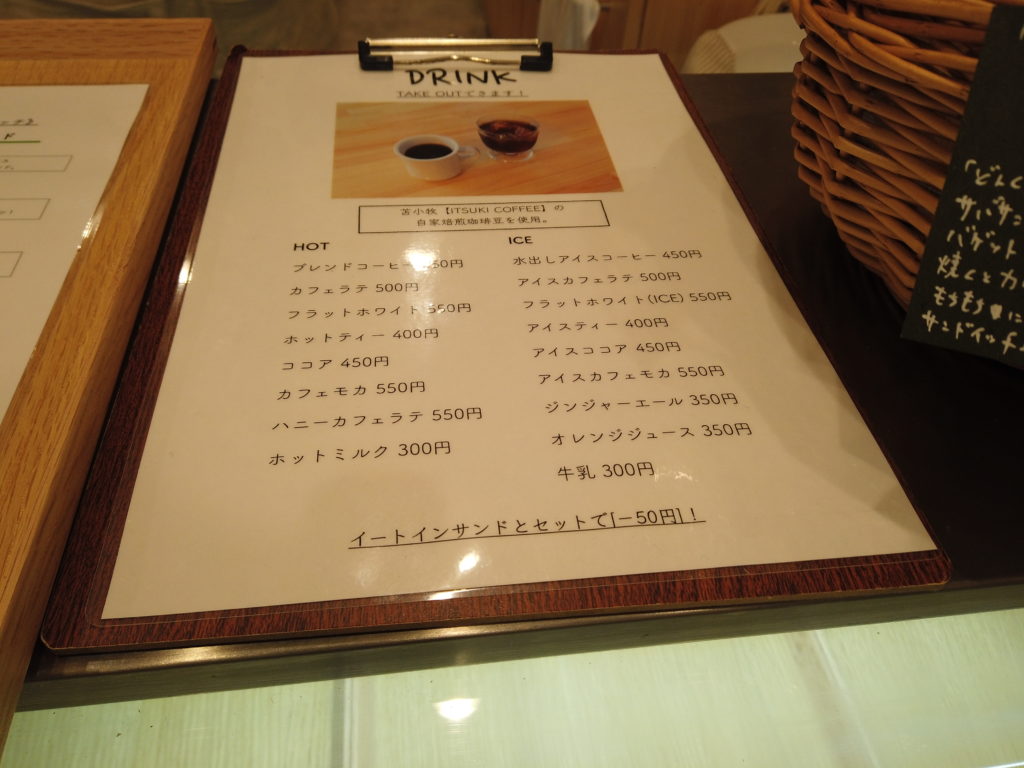 DRINK
TAKE OUTできます！
苫小牧【ITSUKI COFFEE】の
自家焙煎珈琲豆を使用。
HOT
ブレンドコーヒー 450円
カフェラテ 500円
フラットホワイト 550円
ホットティー 400円
ココア 450円
カフェモカ 550円
ハニーカフェラテ 550円
ホットミルク 300円
ICE
水出しアイスコーヒー 450円
アイスカフェラテ 500円
フラットホワイト(ICE) 550円
アイスティー 400円
アイスココア 450円
アイスカフェモカ 550円
ジンジャーエール 350円
オレンジジュース 350円
牛乳 300円
イートインサンドとセットで[−50円]！
「どんぐ
サバサン
バゲット
焼くとカ
もちもち
サンドイッチ